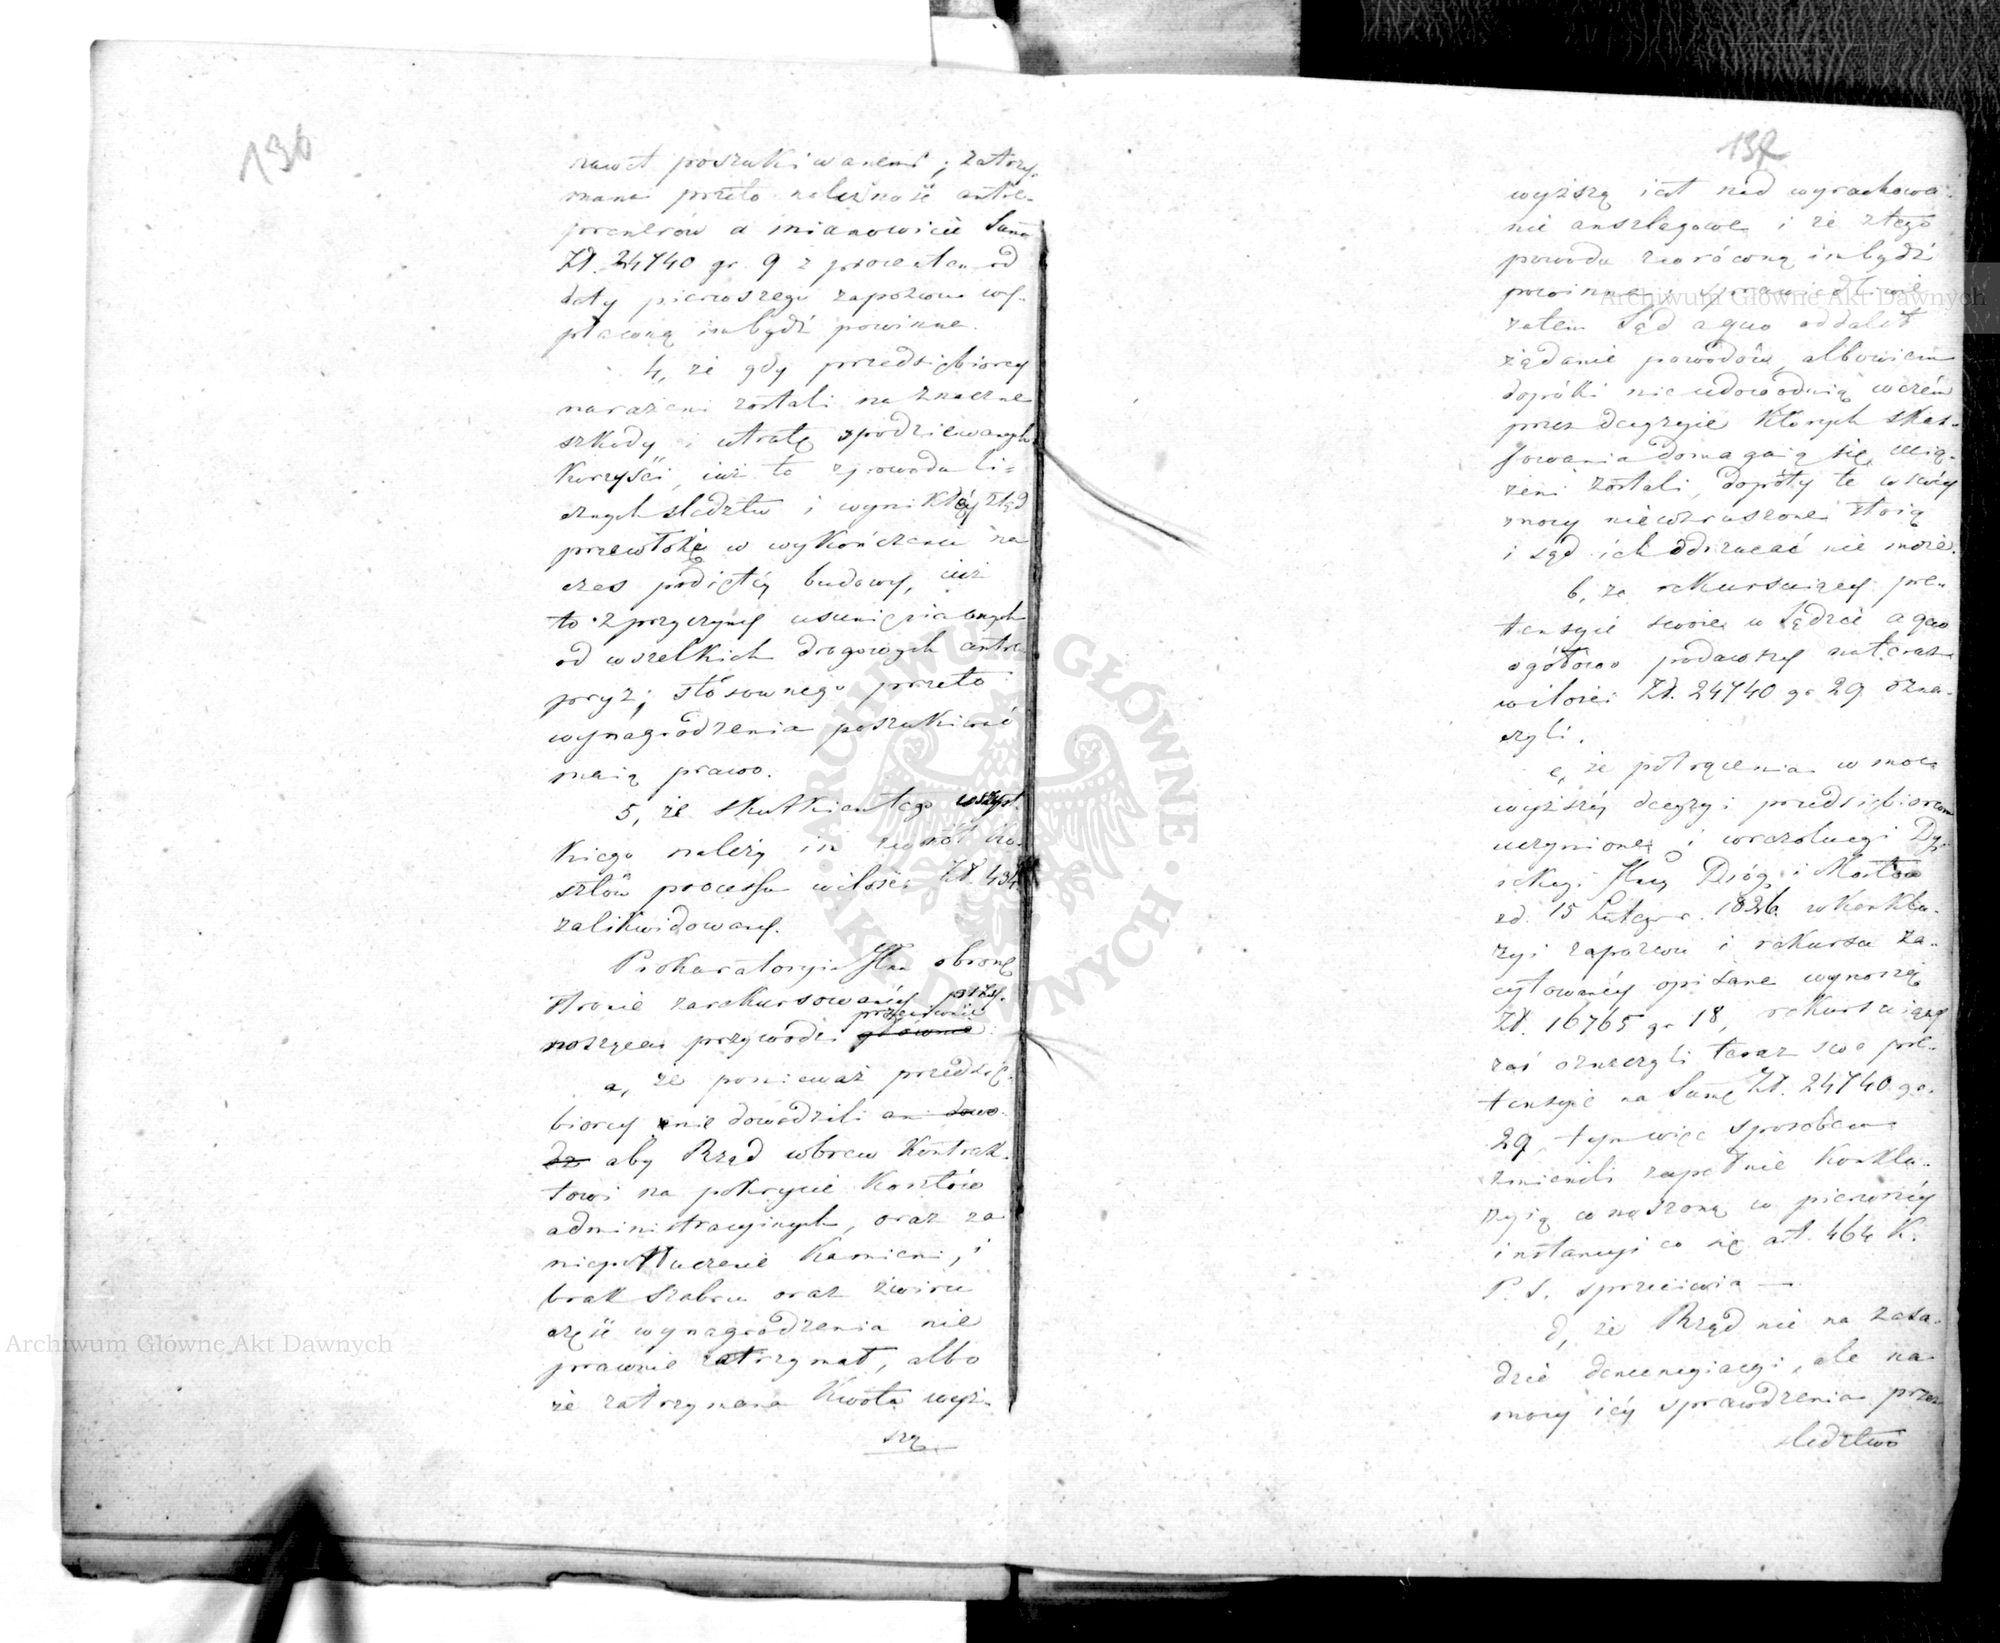 136
nawet poszukiwanemi; zatrzy-
mana przeto należność antre-
prenerów a mianowicie Suma
Zł. 24740 gr. 9 z procentem od
daty pierwszego zapozwu wy-
płaconą im bydź powinna.
4, że gdy przedsiębiorcy
narażeni zostali na znaczne
szkody i utratę spodziewanych
korzyści, iuż to z powodu li-
cznych śledztw i wynikłéy ztąd
przewłoki w wykończeniu na
czas podiętéy budowy, iuż
to z przyczyny usunięcia
od wszelkich drogowych antre-
pryz; stósownego przeto
wynagrodzenia poszukiwać
maią prawo.
5, że skutkiem tego wszyst-
kiego należy im zwrót ko-
sztów processu w ilości Zł. 434
zalikwidowany.
Prokuratorya Jlna obronę
stronie zarekursowanéy
noszącą przywodzi głównie
przeciwnie
a, że ponieważ przedsię-
biorcy nie dowodzili ani dowo-
dz aby Rząd wbrew kontrak-
towi na pokrycie kosztów
administracyinych, oraz za
niepotłuczenie kamieni, i
brak szabru oraz żwiru
część wynagrodzenia nie
prawnie zatrzymał, albo
że zatrzymana kwota wyż-
szą
137
wyższą iest nad wyrachowa-
nie anszlagowe i że z tego
powodu zwróconą im bydź
powinna; sprawiedliwie
zatem Sąd a quo oddalił
żądanie powodów, albowiem
dopóki nie udowodnią w czém
przez decyzye których skas-
sowania domagaią się,
zeni zostali, dopóty te w swéy
mocy niewzruszone stoią
i sąd ich odrzucać nie może.
b, że rekursuiący pre-
tensyie swoie w Sądzie a quo
ogółowo podawszy na teraz
w ilości Zł. 24740 gr 29 ozna-
czyli.
c, że potrącenia w moc
wyższéy decyzyi przedsiębiorcom
uczynione i w rezolucyi Dy-
rekcyi Jlney Dróg i Mostów
zd. 15 Lutego r. 1826. w konklu-
zyi zapozwu i rekursu za-
cytowanéy opisane wynoszą
Zł. 16765 gr 18, rekursuiący
zaś oznaczyli teraz swe pre-
tensyie na Sumę Zł. 24740 gr.
29, tym więc sposobem
zmienili zupełnie konklu-
zyią wnoszoną w pierwszéy
instancyi co się art. 464 K.
P. S. sprzeciwia —
d, że Rząd nie na zasa-
dzie denuncyacyi, ale na
mocy iéy sprawdzenia przez
śledztwo
Archiwum Główne Akt Dawnych
Archiwum Główne Akt Dawnych
ARCHIWUM GŁÓWNE AKT DAWNYCH